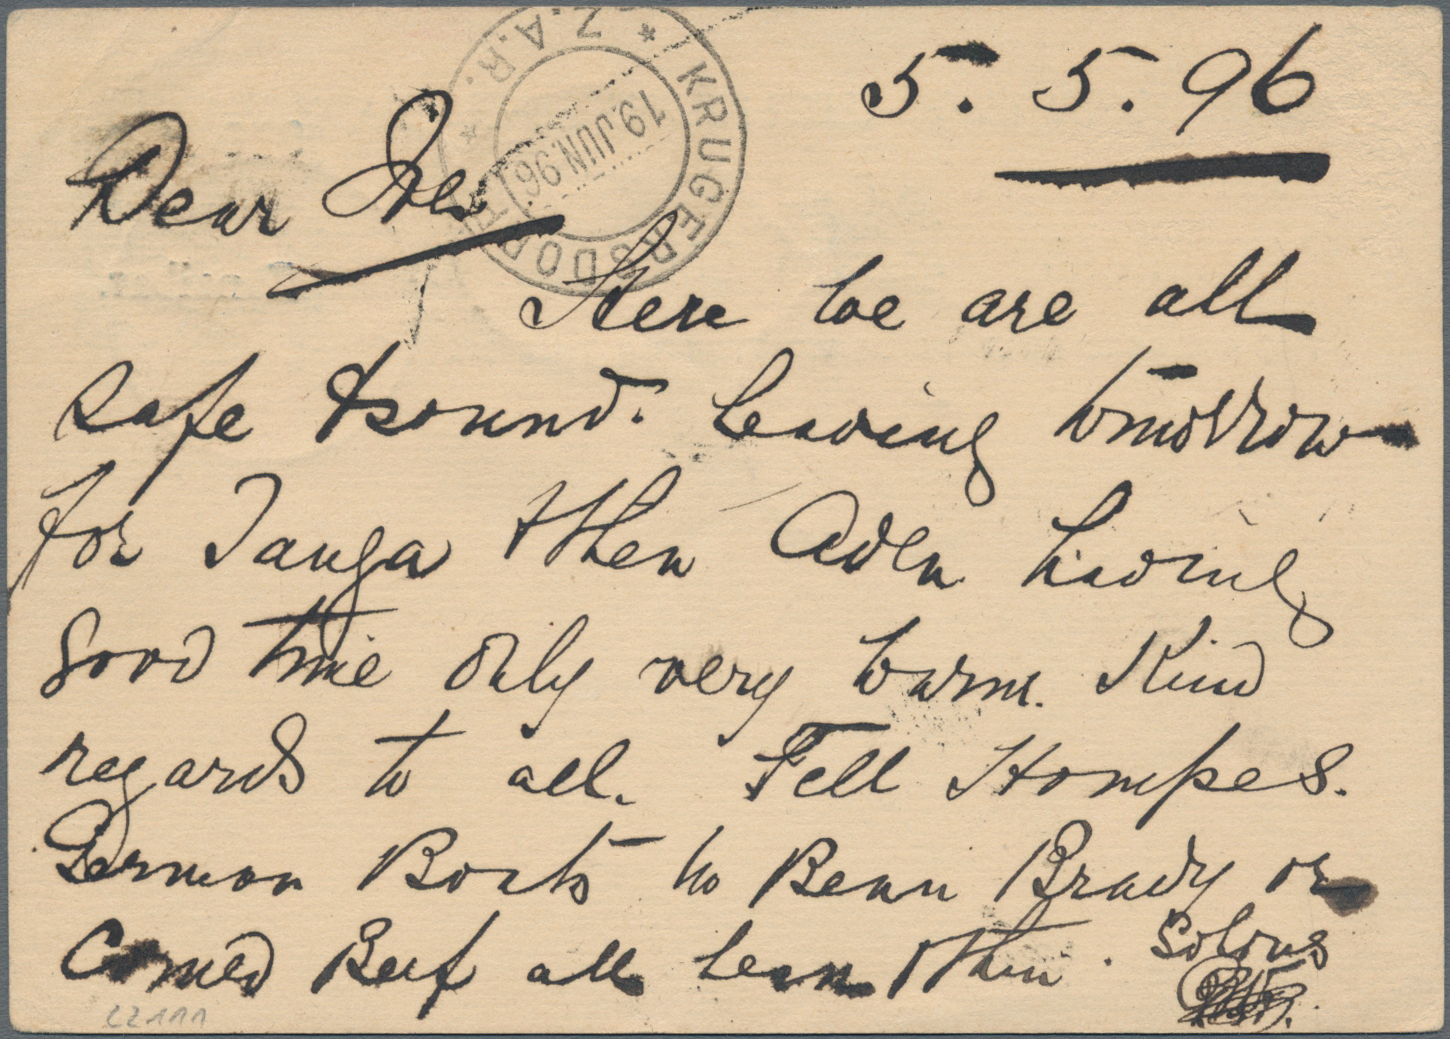 5.5.96
Z.A.R. * KRUGERSDORP *
19.JUN.96
Dear
Here we are all
safe & sound. leaving tomorrow
for Tanga & then Aden having
good time only very warm. Kind
regards to all. Tell Hompes.
German Boats no Beau Brady or
Corned Beef all lean & thin.